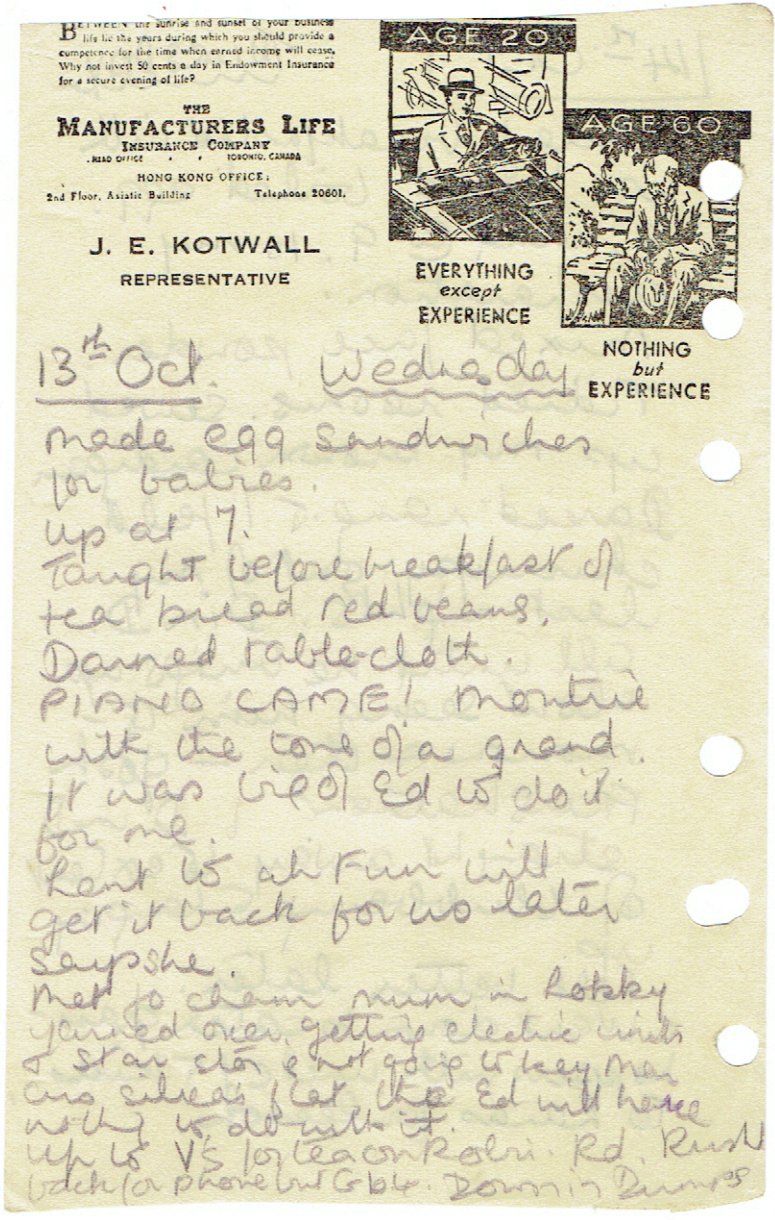 BETWEEN the sunrise and sunset of your business
life lie the years during which you should provide a
competence for the time when earned income will cease.
Why not invest 50 cents a day in Endowment Insurance
for a secure evening of life?
THE
MANUFACTURERS LIFE
INSURANCE COMPANY
HEAD OFFICE TORONTO, CANADA
HONG KONG OFFICE:
2nd Floor, Asiatic Building Telephone 20601.
J. E. KOTWALL
REPRESENTATIVE
AGE 20
EVERYTHING
except
EXPERIENCE
AGE 60
NOTHING
but
EXPERIENCE
13th Oct. Wednesday
Made egg sandwiches
for babies.
Up at 7.
Taught before breakfast of
tea bread red beans.
Darned table-cloth.
PIANO CAME! Montrie
with the tone of a grand.
It was of Ed to do it
for me.
Lent to ah Fun will
get it back for us later
says she.
Met Jo cham mum in
over getting electric units
& not going to key
flat Ed will have
nothing to do with it.
Up to V's for tea on Robin. Rd. Rush
back for phone but Down in Dumps